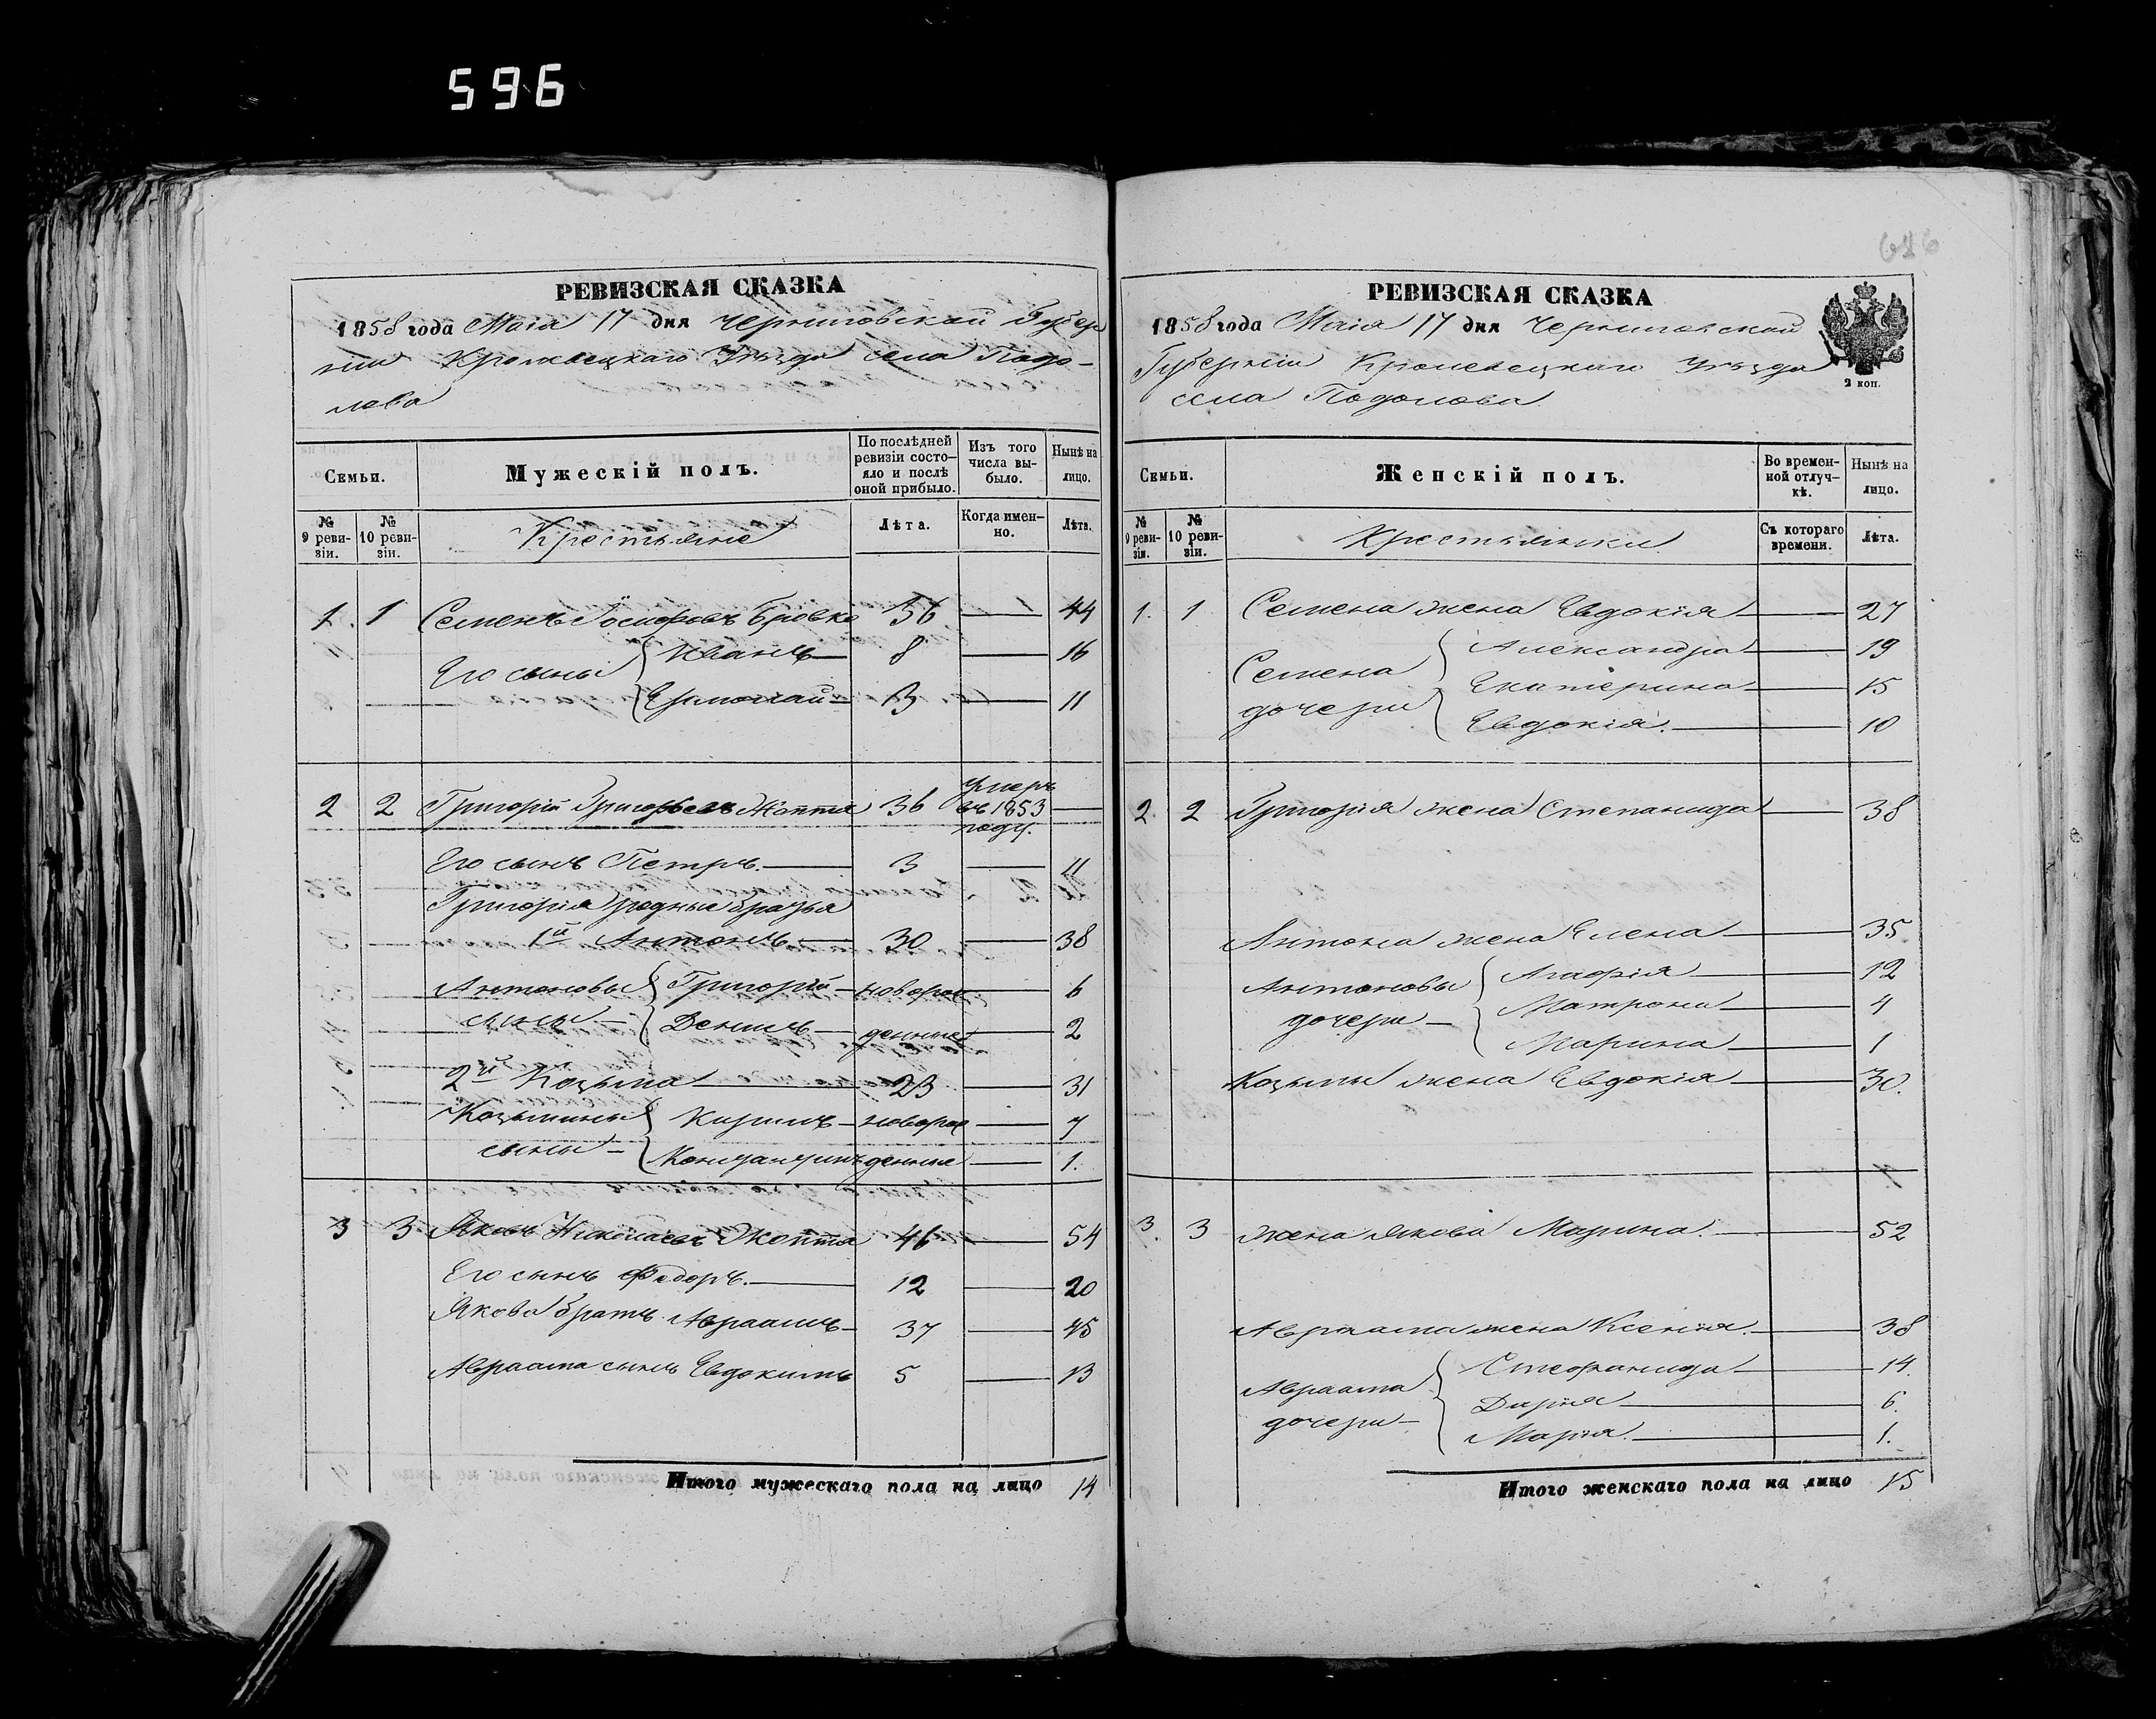 596
РЕВИЗСКАЯ СКАЗКА
1858 года Маія 17 дня Черниговской Губер
ніи Кролевецкаго Уѣзда села Подо-
лова
Семьи.
Мужескій полъ.
По послѣдней ревизіи состо-яло и послѣ оной прибыло.
Изъ того числа вы-было.
Нынѣ на лицо.
№ 9 реви-зіи.
№ 10 реви-зіи.
Крестьяне
Лѣта.
Когда имен-но.
Лѣта.
1. 1 Семенъ Бровко 36 44
Его сыны Иванъ 8 16
Ермолай 3 11
2 2 Григорій Григорьевъ Жопта 36 умеръ въ 1853 году.
Его сынъ Петръ. 3 11
Григорія родные братья
1й Антонъ 30 38
Антоновы Григорій новорож 6
сыны Денисъ денные 2
2й Козьма 23 31
Козьмины Кирилъ новорож 7
сыны Констанчинъ денные 1.
3 3 Яковъ Николаевъ Жопта 46 54
Его сынъ Федоръ. 12 20
Якова братъ Авраамъ 37 45
Авраама сынъ Евдокимъ 5 13
Итого мужескаго пола на лицо 14
616
РЕВИЗСКАЯ СКАЗКА
1858 года Маія 17 дня Черниговской
Губерніи Кролевецкаго Уѣзда
села Подолова
2 коп.
Семьи.
Женскій полъ.
Во времен-ной отлуч-кѣ.
Нынѣ на лицо.
№ 9 реви-зіи.
№ 10 реви-зіи.
Крестьянки
Съ котораго времени.
Лѣта.
1. 1. Семена жена Евдокія 27
Семена Александра 19
дочери Екатерина 15
Евдокія. 10
2. 2 Григорія жена Степанида 38
Антона жена Елена 35
Антоновы Агафія 12
дочери Матрона 4
Марина 1
Козьмы жена Евдокія 30.
3. 3 Жена Якова Марина. 52
Авраама жена Ксенія. 38
Авраама Стефанида 14.
дочери Дарія 6.
Марія. 1.
Итого женскаго пола на лицо 15